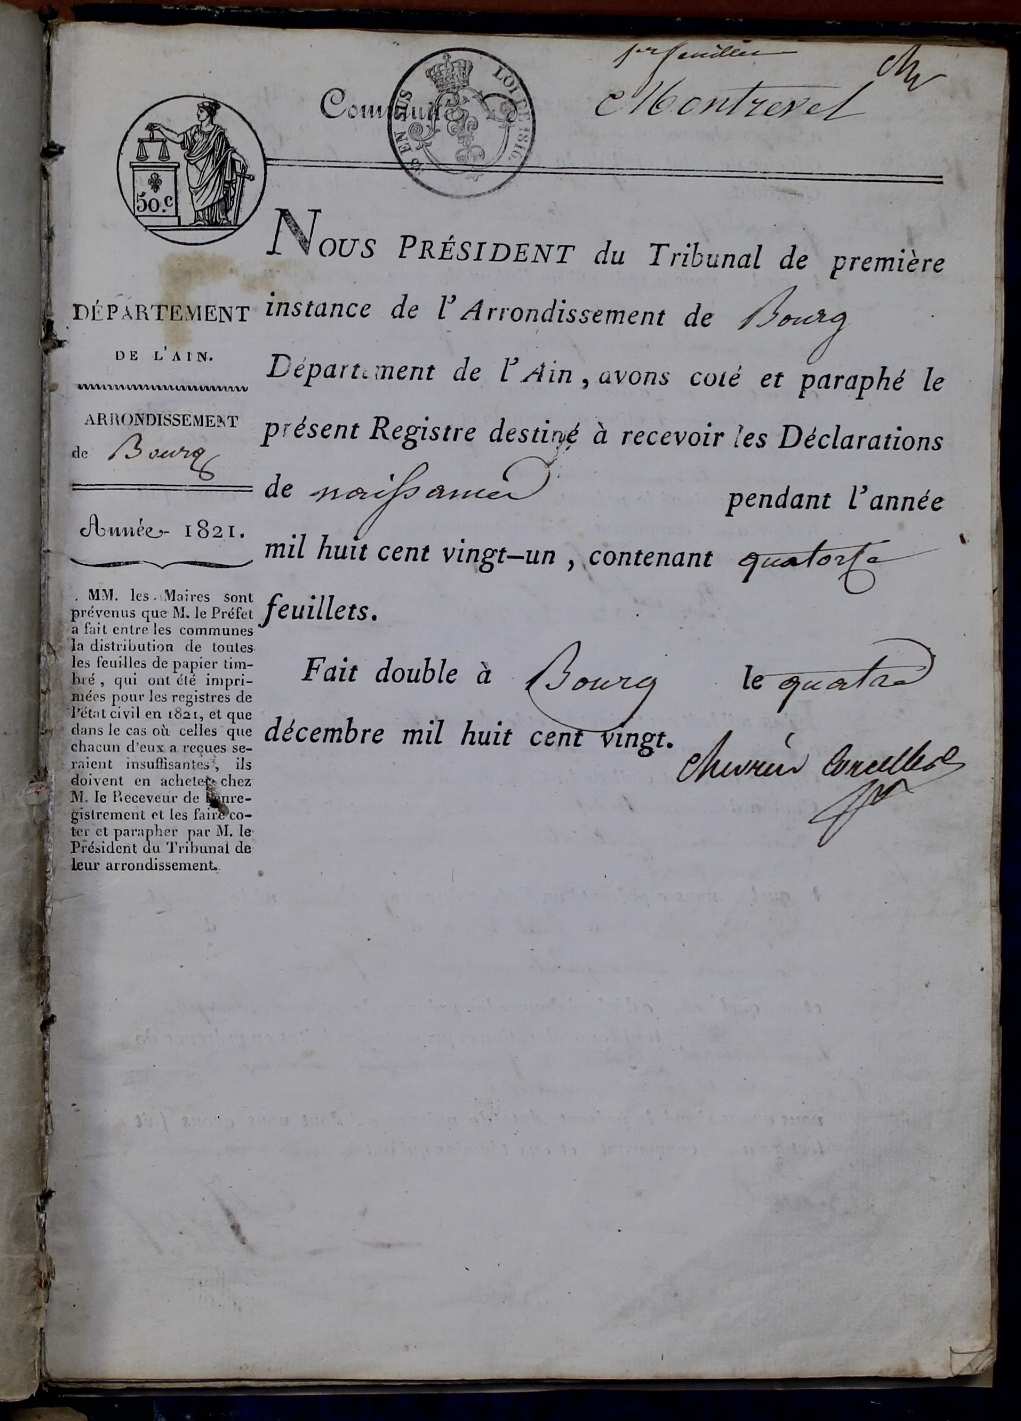 1er feuillet
Commune de Montrevel
EN SUS
LOI DE 1816.
50.c
DÉPARTEMENT
DE L'AIN.
ARRONDISSEMENT
de Bourg
Année 1821.
. MM. les Maires sont
prévenus que M. le Préfet
a fait entre les communes
la distribution de toutes
les feuilles de papier tim-
bré, qui ont été impri-
mées pour les registres de
l'état civil en 1821, et que
dans le cas où celles que
chacun d'eux a reçues se-
raient insuffisantes, ils
doivent en acheter chez
M. le Receveur de l'enre-
gistrement et les faire co-
ter et parapher par M. le
Président du Tribunal de
leur arrondissement.
NOUS PRÉSIDENT du Tribunal de première
instance de l'Arrondissement de Bourg
Département de l'Ain, avons coté et paraphé le
présent Registre destiné à recevoir les Déclarations
de naissances pendant l'année
mil huit cent vingt-un, contenant quatorze
feuillets.
Fait double à Bourg le quatre
décembre mil huit cent vingt.